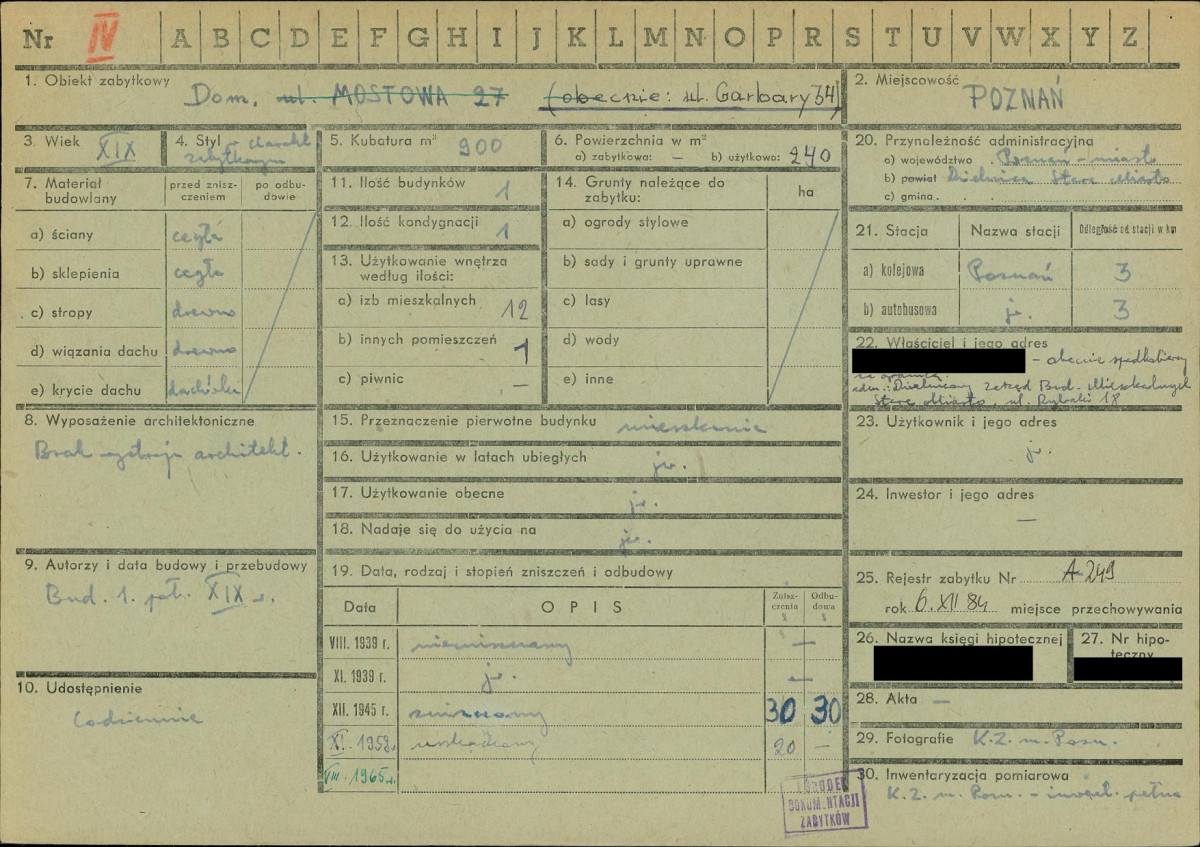 Nr IV A B C D E F G H I J K L M N O P R S T U V W X Y Z
1. Obiekt zabytkowy
Dom, ul. MOSTOWA 27 (obecnie: ul. Garbary 34)
2. Miejscowość
POZNAŃ
3. Wiek
XIX
4. Styl - charakt.
zabytkowym
5. Kubatura m³ 900
6. Powierzchnia w m²
a) zabytkowa: — b) użytkowa: 240
7. Materiał budowlany
przed znisz-czeniem
po odbu-dowie
a) ściany cegła
b) sklepienia cegła
c) stropy drewno
d) wiązania dachu drewno
e) krycie dachu dachówka
8. Wyposażenie architektoniczne
Brak wystroju architekt.
9. Autorzy i data budowy i przebudowy
Bud. 1. poł. XIX w.
10. Udostępnienie
Codziennie
11. Ilość budynków 1
12. Ilość kondygnacji 1
13. Użytkowanie wnętrza
według ilości:
a) izb mieszkalnych 12
b) innych pomieszczeń 1
c) piwnic —
14. Grunty należące do
zabytku:
ha
a) ogrody stylowe
b) sady i grunty uprawne
c) lasy
d) wody
e) inne
15. Przeznaczenie pierwotne budynku mieszkanie
16. Użytkowanie w latach ubiegłych jw.
17. Użytkowanie obecne jw.
18. Nadaje się do użycia na jw.
19. Data, rodzaj i stopień zniszczeń i odbudowy
Data OPIS Znisz-czenia Odbu-dowa
VIII. 1939 r. niezniszczony —
XI. 1939 r. jw. —
XII. 1945 r. zniszczony 30 30
XI. 1958r. uszkodzony 20 —
VIII. 1965 r.
OŚRODEK
DOKUMENTACJI
ZABYTKÓW
20. Przynależność administracyjna
a) województwo Poznań - miasto
b) powiat Dzielnica Stare Miasto
c) gmina
21. Stacja Nazwa stacji Odległość od stacji w km
a) kolejowa Poznań 3
b) autobusowa jw. 3
22. Właściciel i jego adres
- obecnie spadkobiercy
za granicą
adm.: Dzielnicowy Zarząd Bud. Mieszkalnych
Stare Miasto, ul. Rybaki 18
23. Użytkownik i jego adres
jw.
24. Inwestor i jego adres
—
25. Rejestr zabytku Nr A-249
rok 6.XII 84 miejsce przechowywania
26. Nazwa księgi hipotecznej
27. Nr hipo-
teczny
28. Akta —
29. Fotografie K.Z. m. Pozn.
30. Inwentaryzacja pomiarowa
K.Z. m. Pozn. - inwent. pełna